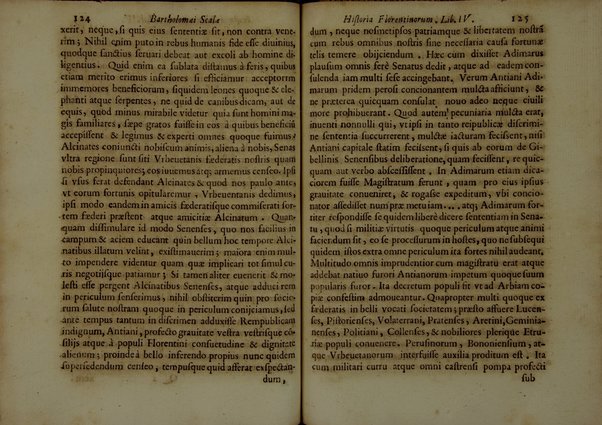 124 Bartholomæi Scalæ
xerit, neque, si quis eius sententiæ sit, non contra vene-
rim; Nihil enim puto in rebus humanis fide esse diuinius,
quodque sanctius seruari debeat aut excoli ab homine di-
ligentius. Quid enim ea sublata distamus à feris, quibus
etiam merito erimus inferiores si efficiamur acceptorum
immemores beneficiorum, siquidem leones quoque & ele-
phanti atque serpentes, ne quid de canibus dicam, aut de
equis, quod minus mirabile videtur quia sunt homini ma-
gis familiares, sæpe gratos fuisse in eos à quibus beneficiũ
accepissent & legimus & experti omnes quoque fuimus.
Alcinates coniuncti nobiscum animis, aliena à nobis, Senas
vltra regione sunt siti Vrbeuetanis fæderatis nostris quam
nobis propinquiores, eos iuuemus atq; armemus censeo. Ipsi
si vsus ferat defendant Alcinates & quod nos paulo ante,
vt eorum fortunis opitularemur, Vrbeuetanis dedimus,
ipsi modo eandem in amicis fæderatisque commiserati sor-
tem fæderi præstent atque amicitiæ Alcinatum. Quan-
quam dissimulare id modo Senenses, quo nos facilius in
campum & aciem educant quin bellum hoc tempore Alci-
natibus illatum velint, existimauerim; maiora enim mul-
to impendere videntur quam quæ implicari tot simul cu-
ris negotijsque patiantur; Si tamen aliter euenerit & mo-
lesti esse pergent Alcinatibus Senenses, atque adduci rem
in periculum senserimus, nihil obstiterim quin pro socio-
rum salute nostram quoque in periculum conijciamus, sed
ante tempus tantum in discrimen adduxisse Rempublicam
indignum, Antiani, profecto grauitate vestra vestrisque cõ-
silijs atque à populi Florentini consuetudine & dignitate
alienum; proinde à bello inferendo propius nunc quidem
supersedendum censeo, tempusque quid afferat exspectan-
dum,
Historia Florentinorum. Lib. IV. 125
dum, neque nosmetipsos patriamque & libertatem nostrã
cum rebus omnibus nostris sine necessaria causa fortunæ
telis temere obijciendum. Hæc cum dixisset Adimarus
plausum omnis ferè Senatus dedit, atque ad eadem con-
sulenda iam multi sese accingebant. Verum Antiani Adi-
marum pridem perosi concionantem mulcta afficiunt, &
ne præterea quicquam consulat nouo adeo neque ciuili
more prohibuerant. Quod autem pecuniaria mulcta erat,
inuenti nonnulli qui, vt ipsi in tanto reipublicæ discrimi-
ne sententia succurrerent, mulctæ iacturam fecissent, nisi
Antiani capitale statim fecissent, si quis ab eorum de Gi-
bellinis Senensibus deliberatione, quam fecissent, re quic-
quam aut verbo abscessissent. In Adimarum etiam dica-
ciorem fuisse Magistratum ferunt, quam pro eius ipsus
grauitate conueniret, & rogasse expeditum, vbi concio-
nator assedisset num præ metu iam... , atq; Adimarum for-
titer respondisse se quidem liberè dicere sententiam in Sena-
tu, quod si militiæ virtutis quoque periculum atque animi
faciendum sit, eo se processurum in hostes, quo ne subsequi
quidem, illos extra omne periculum ita fortes nihil audeant,
Multumque omnis impendebat cum magistratu erat atque
addebat natiuo furori Antianorum impetum quoque suum
popularis furor. Ita decretum populi sit vt ad Arbiam co-
piæ confestim admoueantur. Quapropter multi quoque ex
fæderatis in belli vocati societatem; præsto affuere Lucen-
ses, Pistorienses, Volaterrani, Pratenses, Aretini, Geminia-
nenses, Politiani, Collenses, & nobiliores plenique Etru-
riæ populi conuenere. Perusinorum, Bononiensium, at-
que Vrbeuetanorum interfuisse auxilia proditum est. Ita
cum militari cultu atque omni castrensi pompa profecti
sub